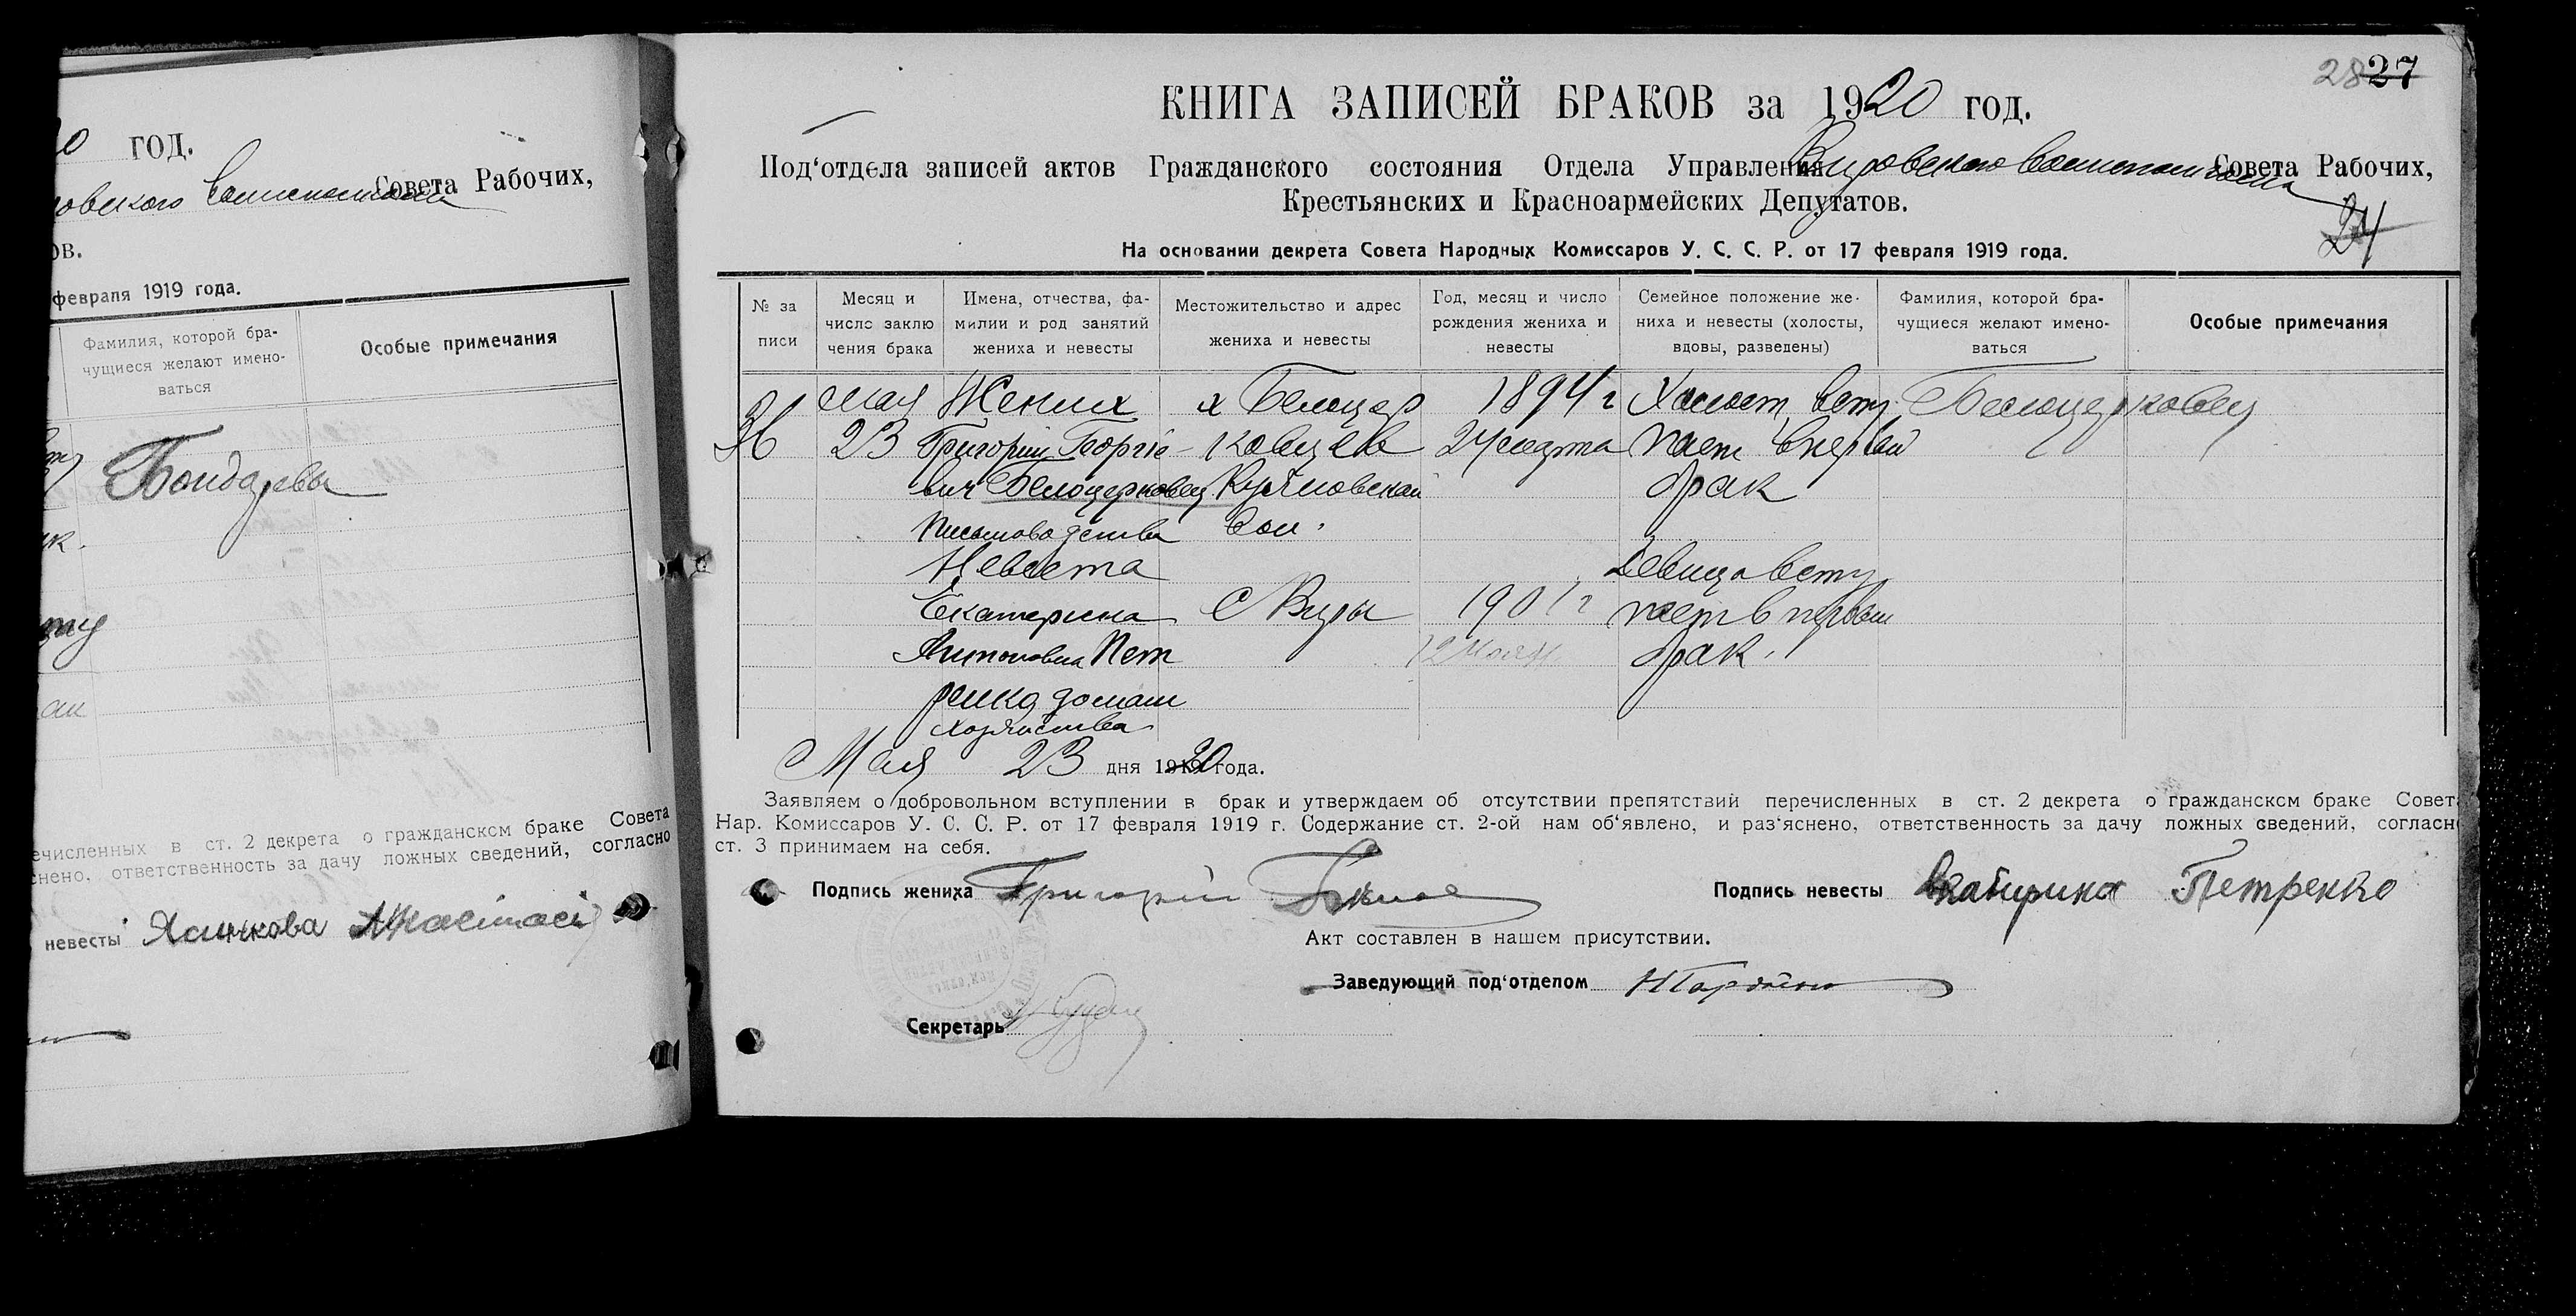 0 год.
Совета Рабочих,
ов.
февраля 1919 года.
Фамилия, которой бра-
чущиеся желают имено-
ваться
Особые примечания
Бондарева
ак
ечисленных в ст. 2 декрета о гражданском браке Совета
снено, ответственность за дачу ложных сведений, согласно
невесты
28 27
КНИГА ЗАПИСЕЙ БРАКОВ за 1920 год.
Под‘отдела записей актов Гражданского состояния Отдела Управления Совета Рабочих,
Крестьянских и Красноармейских Депутатов.
24
На основании декрета Совета Народных Комиссаров У. С. С. Р. от 17 февраля 1919 года.
№ за
писи
Месяц и
число заклю
чения брака
Имена, отчества, фа-
милии и род занятий
жениха и невесты
Местожительство и адрес
жениха и невесты
Год, месяц и число
рождения жениха и
невесты
Семейное положение же-
ниха и невесты (холосты,
вдовы, разведены)
Фамилия, которой бра-
чущиеся желают имено-
ваться
Особые примечания
мая Жених х Белоцер 1894 г Холост всту Белоцерковец
23 Григорий Георгіе- ковцев 24 марта пает в первый
вич Белоцерковец брак
Письмоводства вол.
Невеста Девица всту
Екатерина С Виры 1901 г пает в первый
Антоновна Пет брак.
ренко домаш
хозяйства
Мая 23 дня 1920 года.
Заявляем о добровольном вступлении в брак и утверждаем об отсутствии препятствий перечисленных в ст. 2 декрета о гражданском браке Совет
Нар. Комиссаров У. С. С. Р. от 17 февраля 1919 г. Содержание ст. 2-ой нам об‘явлено, и раз‘яснено, ответственность за дачу ложных сведений, согласн
ст. 3 принимаем на себя.
Подпись жениха Григорій
Подпись невесты Екатирина Петренко
Акт составлен в нашем присутствии.
Заведующий под‘отделом
Секретарь